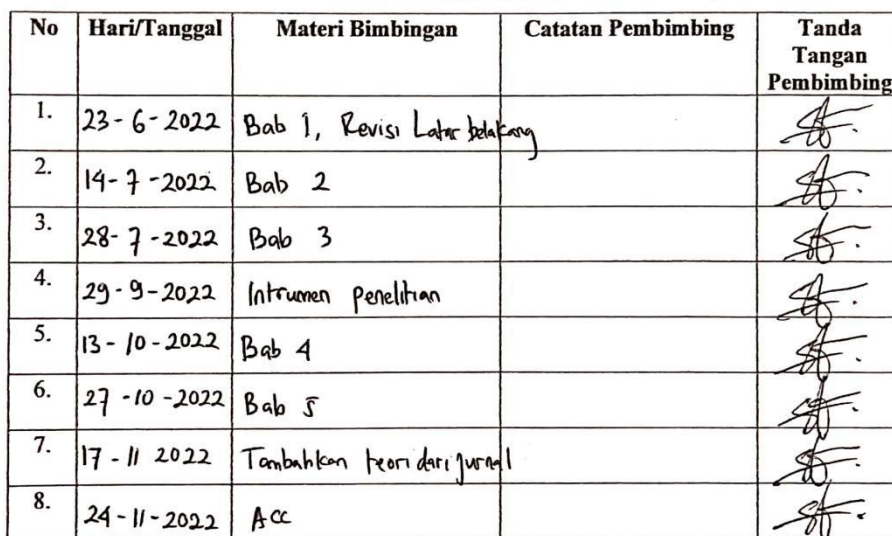 No Hari/Tanggal Materi Bimbingan Catatan Pembimbing Tanda
Tangan
Pembimbing
1. 23-6-2022 Bab 1, Revisi Latar belakang
2. 14-7-2022 Bab 2
3. 28-7-2022 Bab 3
4. 29-9-2022 Intrumen penelitian
5. 13-10-2022 Bab 4
6. 27-10-2022 Bab 5
7. 17-11 2022 Tambahkan teori dari jurnal
8. 24-11-2022 Acc